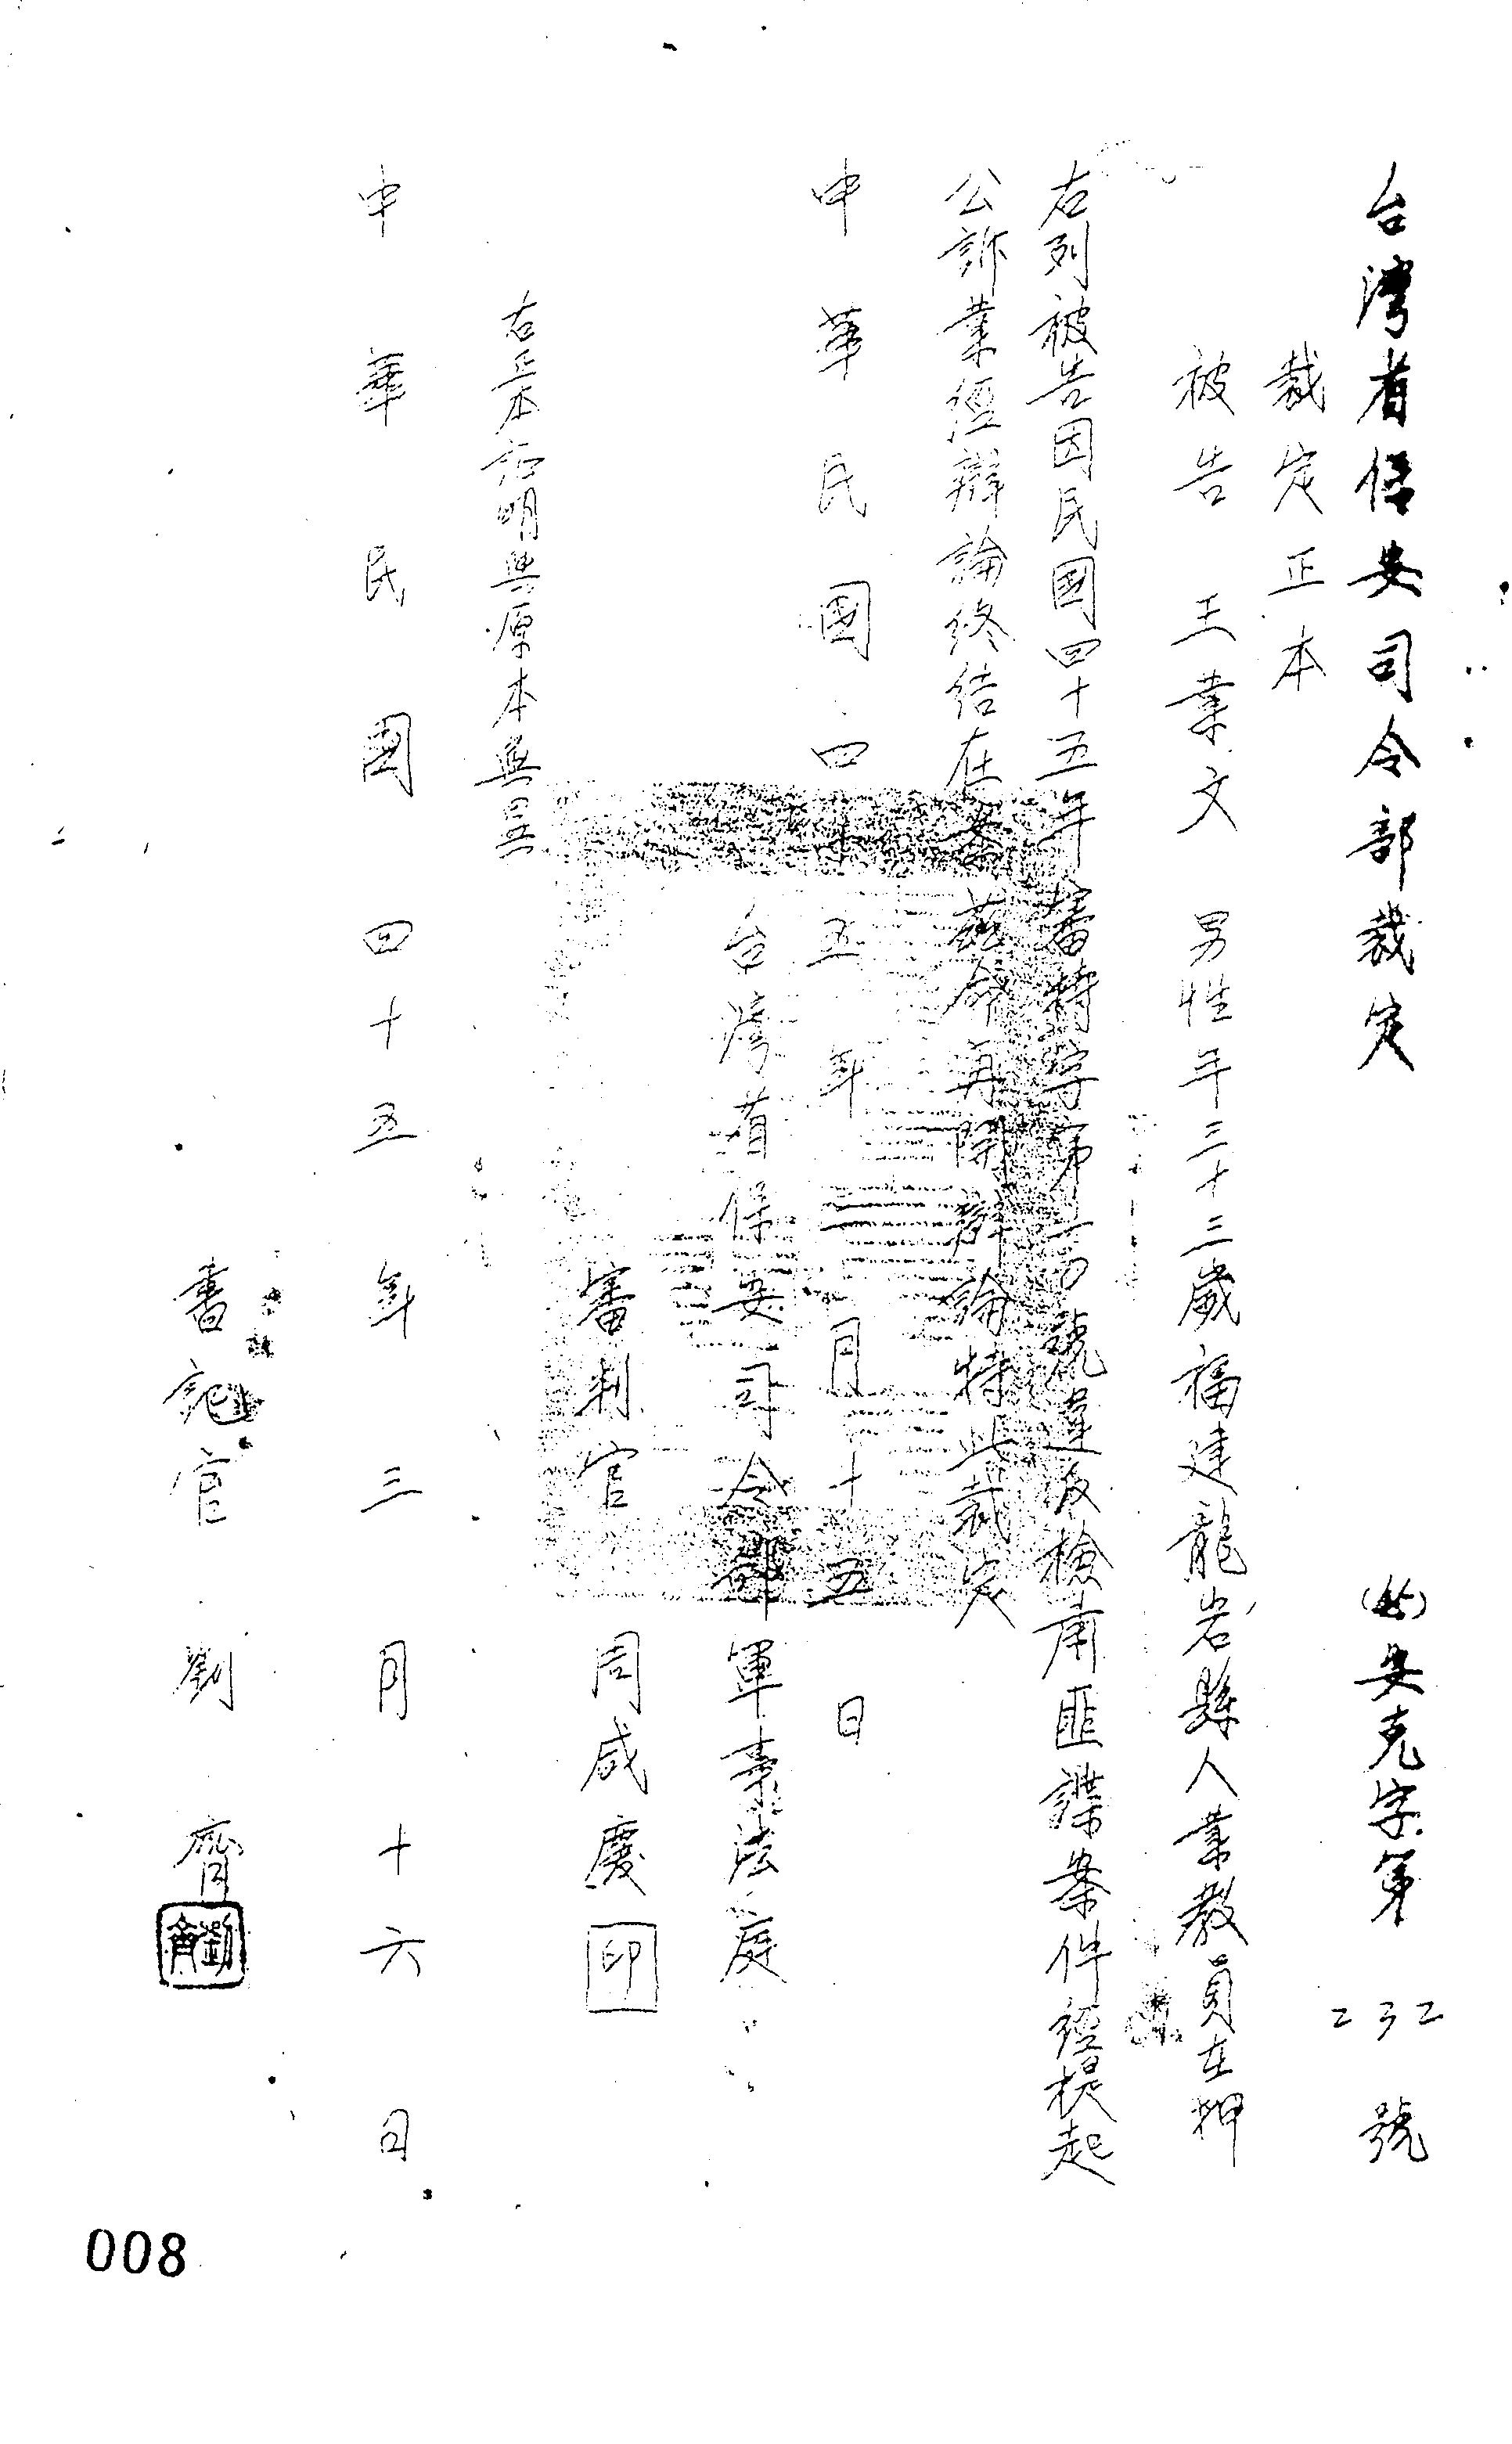 台湾省保安司令部裁定 安克字第232號
裁定正本
被告 王業文 男性年三十三歲福建龍岩縣人業教員在押
右列被告因民國四十五年審特字第 號違反檢肅匪諜案件經提起
公訴業經辯論終結在案茲命再開辯論特此裁定
中華民國四十五年三月十五日
台湾省保安司令部軍事法庭
審判官 周咸慶 印
右正本証明與原本無異
中華民國四十五年三月十六日
書記官 劉齊
劉齊
008